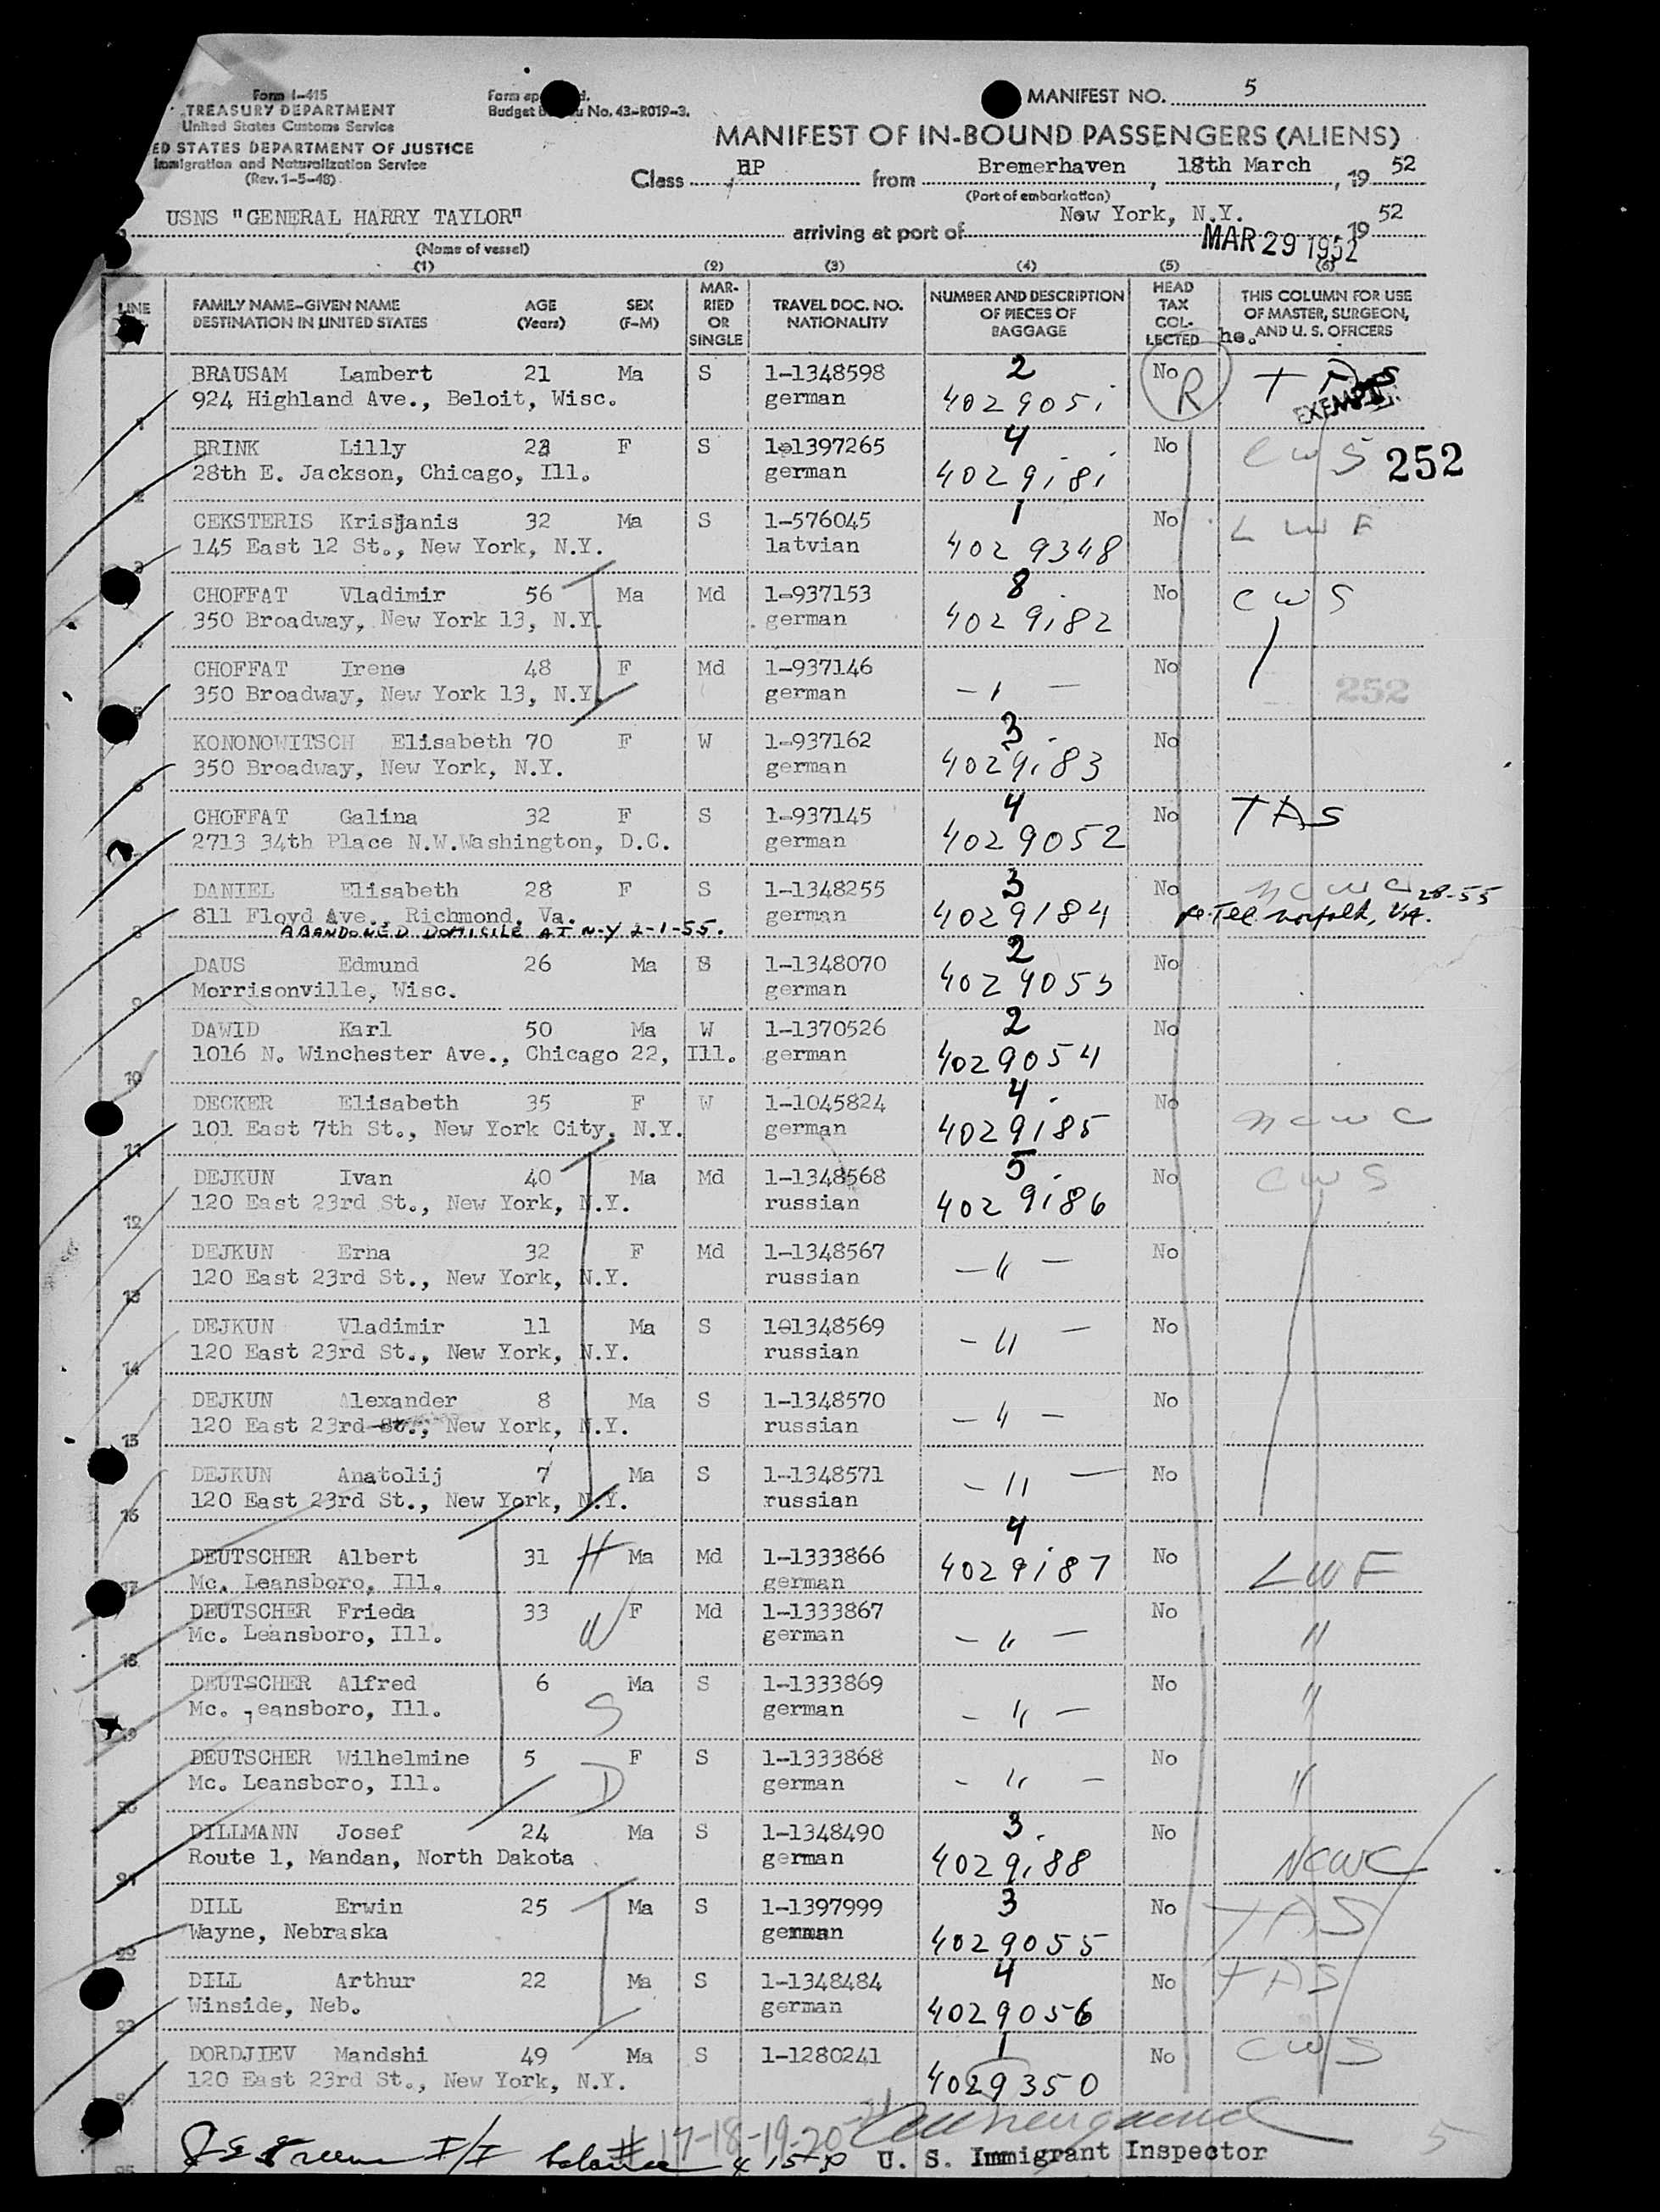 Form I-415
TREASURY DEPARTMENT
United States Customs Service
ED STATES DEPARTMENT OF JUSTICE
Immigration and Naturalization Service
(Rev. 1-5-48)
Budget No. 43-R019-3.
MANIFEST NO. 5
MANIFEST OF IN-BOUND PASSENGERS (ALIENS)
Class from Bremerhaven, 18th March, 19 52
(Port of embarkation)
USNS "GENERAL HARRY TAYLOR" arriving at port of New York, N.Y. 19 52
MAR 29 1952
(Name of vessel)
(1) (2) (3) (4) (5) (6)
LINE
FAMILY NAME-GIVEN NAME AGE SEX
DESTINATION IN UNITED STATES (Years) (F-M)
MARRIED OR SINGLE
TRAVEL DOC. NO. NATIONALITY
NUMBER AND DESCRIPTION OF PIECES OF BAGGAGE
HEAD TAX COLLECTED
THIS COLUMN FOR USE OF MASTER, SURGEON, AND U. S. OFFICERS
BRAUSAM Lambert 21 Ma S 1-1348598 2 No R
924 Highland Ave., Beloit, Wisc. german 4029051 EXEMPT
BRINK Lilly F S 1397265 4 No CWS 252
28th E. Jackson, Chicago, Ill. german 4029181
CEKSTERIS Krisjanis 32 Ma S 1-576045 1 No LWF
145 East 12 St., New York, N.Y. latvian 4029348
CHOFFAT Vladimir 56 Ma Md 1-937153 8 No CWS
350 Broadway, New York 13, N.Y. german 4029182
CHOFFAT Irene 48 F Md 1-937146 No
350 Broadway, New York 13, N.Y. german - " - 252
KONONOWITSCH Elisabeth 70 F W 1-937162 3 No
350 Broadway, New York, N.Y. german 4029183
CHOFFAT Galina 32 F S 1-937145 4 No TAS
2713 34th Place N.W.Washington, D.C. german 4029052
DANIEL Elisabeth 28 F S 1-1348255 3 No NCWC
811 Floyd Ave., Richmond, Va. german 4029184 Norfolk, VA.
ABANDONED DOMICILE AT N-Y 2-1-55.
DAUS Edmund 26 Ma S 1-1348070 2 No
Morrisonville, Wisc. german 4029053
DAWID Karl 50 Ma W 1-1370526 2 No
1016 N. Winchester Ave., Chicago 22, Ill. german 4029054
DECKER Elisabeth 35 F W 1-1045824 4 No NCWC
101 East 7th St., New York City, N.Y. german 4029185
DEJKUN Ivan 40 Ma Md 1-1348568 5 No CWS
120 East 23rd St., New York, N.Y. russian 4029186
DEJKUN Erna 32 F Md 1-1348567 No
120 East 23rd St., New York, N.Y. russian - " -
DEJKUN Vladimir 11 Ma S 101348569 No
120 East 23rd St., New York, N.Y. russian - " -
DEJKUN Alexander 8 Ma S 1-1348570 No
120 East 23rd St., New York, N.Y. russian - " -
DEJKUN Anatolij 7 Ma S 1-1348571 No
120 East 23rd St., New York, N.Y. russian - " -
DEUTSCHER Albert 31 H Ma Md 1-1333866 4 No LWF
Mc. Leansboro, Ill. german 4029187
DEUTSCHER Frieda 33 W F Md 1-1333867 No "
Mc. Leansboro, Ill. german - " -
DEUTSCHER Alfred 6 S Ma S 1-1333869 No "
Mc. eansboro, Ill. german - " -
DEUTSCHER Wilhelmine 5 D F S 1-1333868 No "
Mc. Leansboro, Ill. german - " -
DILLMANN Josef 24 Ma S 1-1348490 3 No NCWC
Route 1, Mandan, North Dakota german 4029188
DILL Erwin 25 Ma S 1-1397999 3 No TAS
Wayne, Nebraska german 4029055
DILL Arthur 22 Ma S 1-1348484 4 No TAS
Winside, Neb. german 4029056
DORDJIEV Mandshi 49 Ma S 1-1280241 1 No CWS
120 East 23rd St., New York, N.Y. 4029350
# 17-18-19-20-21
U. S. Immigrant Inspector 5